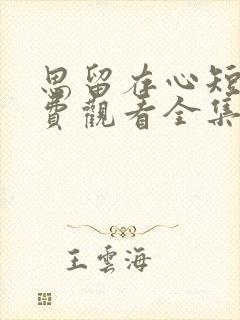 思留在心短
費觀看全集
王雲海